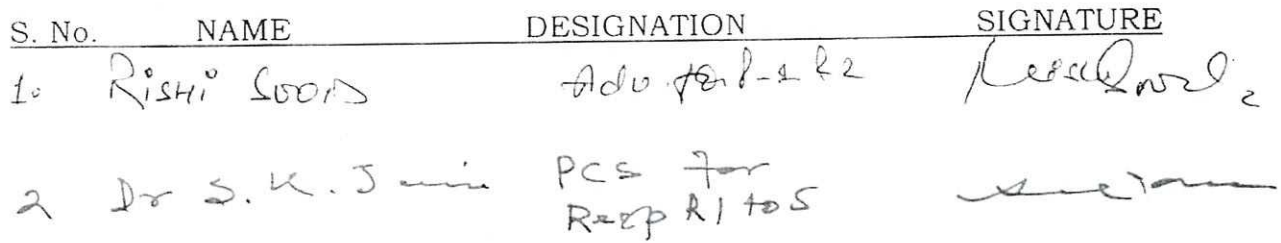 S. No. NAME DESIGNATION SIGNATURE
1. Rishi Sood Adv for R-1 & 2
2 Dr S. K. Jain PCS for
Resp R1 to 5